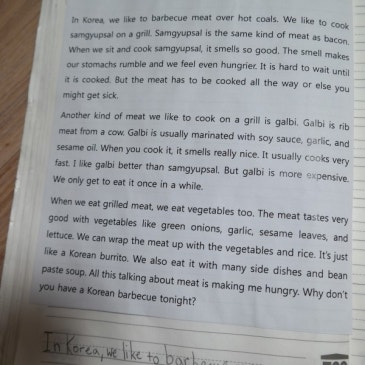 In Korea, we like to barbecue meat over hot coals. We like to cook
samgyupsal on a grill. Samgyupsal is the same kind of meat as bacon.
When we sit and cook samgyupsal, it smells so good. The smell makes
our stomachs rumble and we feel even hungrier. It is hard to wait until
it is cooked. But the meat has to be cooked all the way or else you
might get sick.
Another kind of meat we like to cook on a grill is galbi. Galbi is rib
meat from a cow. Galbi is usually marinated with soy sauce, garlic, and
sesame oil. When you cook it, it smells really nice. It usually cooks very
fast. I like galbi better than samgyupsal. But galbi is more expensive.
We only get to eat it once in a while.
When we eat grilled meat, we eat vegetables too. The meat tastes very
good with vegetables like green onions, garlic, sesame leaves, and
lettuce. We can wrap the meat up with the vegetables and rice. It's just
like a Korean burrito. We also eat it with many side dishes and bean
paste soup. All this talking about meat is making me hungry. Why don't
you have a Korean barbecue tonight?
In Korea, we like to